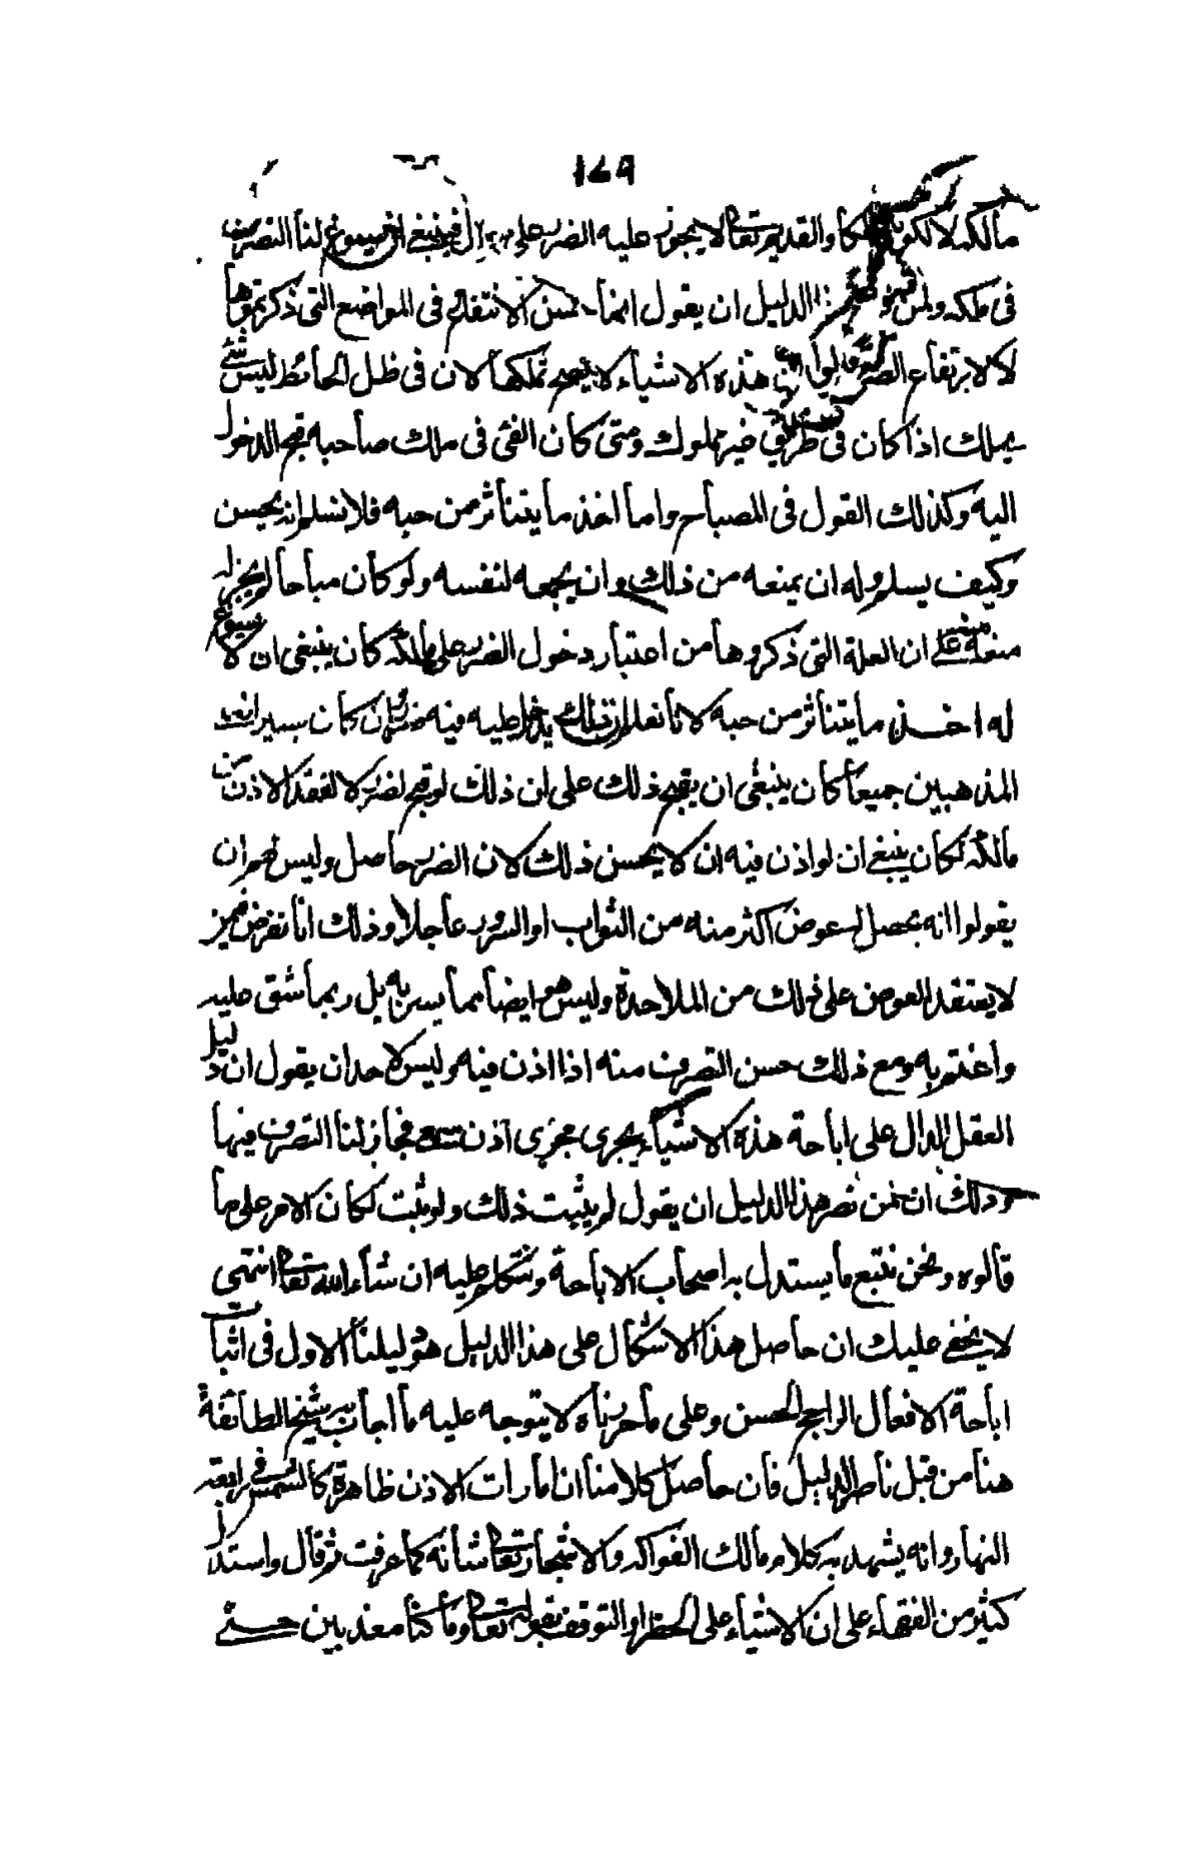 ١٤٩
مالكه لا لكونه مالكا والقديم تعالى لا يجوز عليه الضرر على حال فينبغي ان يسوغ لنا التصرف
في ملكه ولمن الدليل ان يقول انما حسن الانتفاع في المواضع التي ذكرتموها
لا لارتفاع الضرر بل لان هذه الاشياء لا يصح تملكها لان في ظل الحائط ليس بشئ
يملك اذا كان في طريق غير مملوك ومتى كان الفئ في ملك صاحبه قبح الدخول
اليه وكذلك القول في المصباح واما اخذ ما يتناثر من حبه فلا نسلم انه يحسن
وكيف يسلم وله ان يمنعه من ذلك وان يجمعه لنفسه ولو كان مباحا لم يجز له
منعه منه على ان العلة التي ذكروها من اعتبار دخول الضرر على مالكه كان ينبغي ان لا يسوغ
له اخذ ما يتناثر من حبه لانا نعلم ان ذلك يدخل عليه فيه ضرر وان كان يسيرا فعلى
المذهبين جميعا كان ينبغي ان يقبح ذلك على ان ذلك لو قبح لضرر لا لفقد الاذن من
مالكه لكان ينبغي ان لو اذن فيه ان لا يحسن ذلك لان الضرر حاصل وليس لهم ان
يقولوا انه يحصل له عوض اكثر منه من الثواب او السرور عاجلا وذلك انا نفرض فيمن
لا يعتقد العوض على ذلك من الملاحدة وليس هو ايضا مما يسر به بل ربما شق عليه
واغتم به ومع ذلك حسن التصرف منه اذا اذن فيه وليس لاحد ان يقول ان دليل
العقل الدال على اباحة هذه الاشياء يجرى مجرى اذن سمعي فجاز لنا التصرف فيها
وذلك ان لمن نصر هذا الدليل ان يقول لم يثبت ذلك ولو ثبت لكان الامر على ما
قالوه ونحن نتبع ما يستدل به اصحاب الاباحة ونتكلم عليه ان شاء الله تعالى انتهى
لا يخفى عليك ان حاصل هذا الاشكال على هذا الدليل هو دليلنا الاول في اثبات
اباحة الافعال الراجح الحسن وعلى ما حررناه لا يتوجه عليه ما اجاب به شيخ الطائفة
هنا من قبل ناصر الدليل فان حاصل كلامنا ان امارات الاذن ظاهرة كالشمس في رابعة
النهار وانه يشهد به كلام مالك الفواكه والاشجار تعالى شأنه كما عرفت ثم قال واستدل
كثير من الفقهاء على ان الاشياء على الحظر او التوقف بقوله تعالى وما كنا معذبين حتى